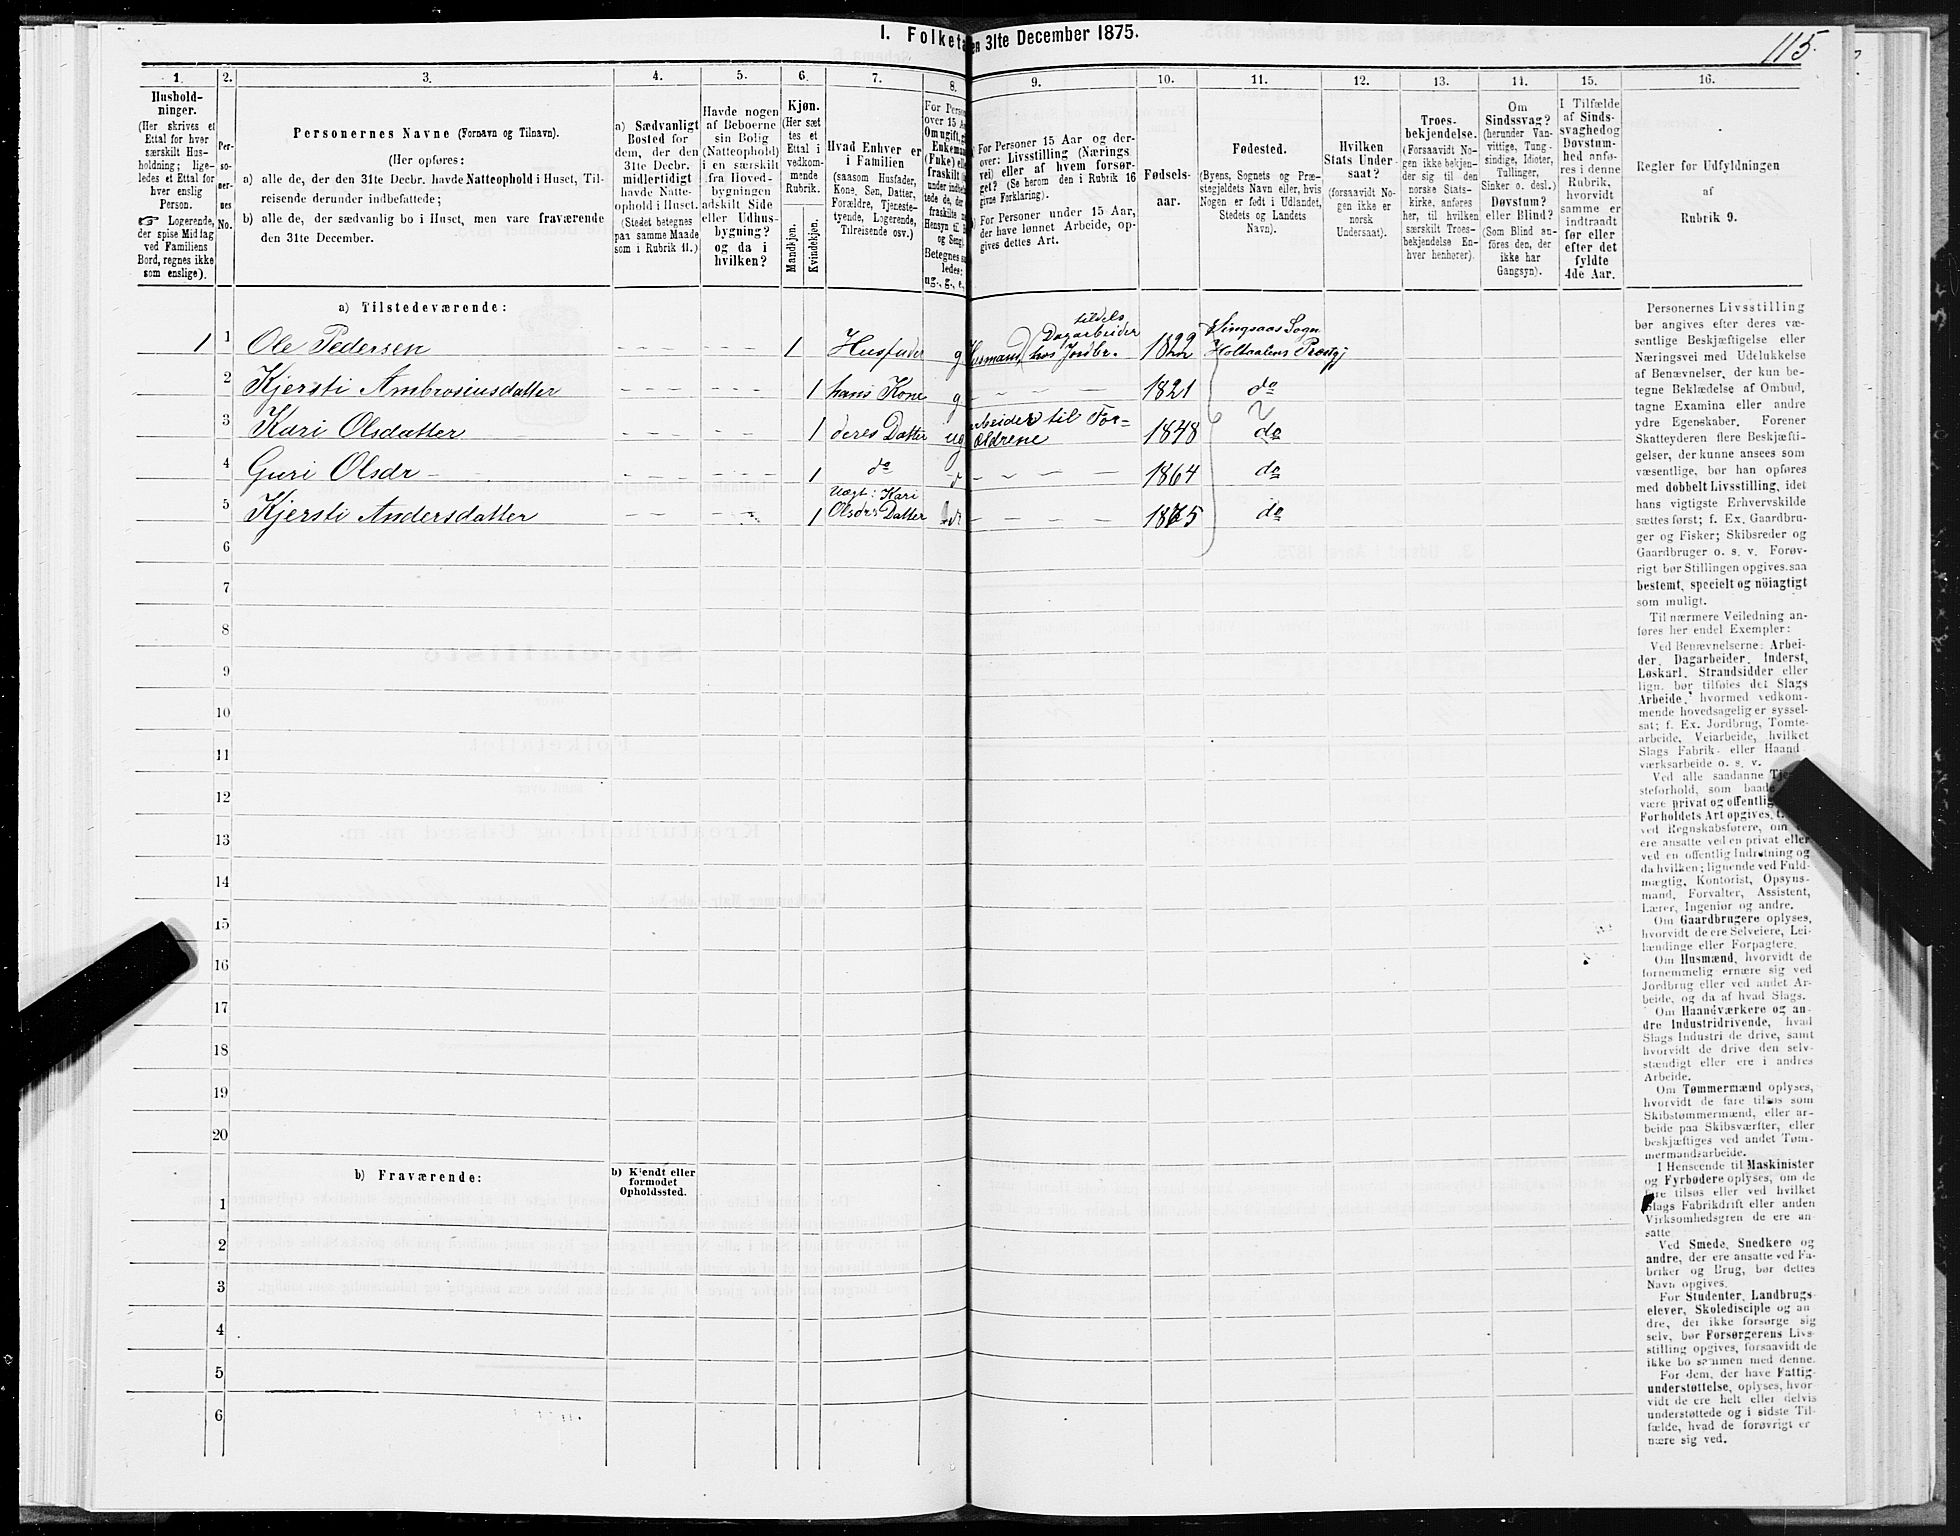 I. Folketæ en 31te December 1875.
115.
1. 2. 3. 4. 5. 6. 7. 8. 9. 10. 11. 12. 13. 14. 15. 16.
Hushold-
ninger.
(Her skrives et
Ettal for hver
særskilt Hus-
holdning; lige-
ledes et Ettal for
hver enslig
Person.
☞ Logerende,
der spise Middag
ved Familiens
Bord, regnes ikke
som enslige).
Per-
so-
ner-
nes
No.
Personernes Navne (Fornavn og Tilnavn).
(Her opføres:
a) alle de, der den 31te Decbr. havde Natteophold i Huset, Til-
reisende derunder indbefattede;
b) alle de, der sædvanlig bo i Huset, men vare fraværende
den 31te December.
a) Sædvanligt
Bosted for
dem, der den
31te Decbr.
midlertidigt
havde Natte-
ophold i Huset.
(Stedet betegnes
paa samme Maade
som i Rubrik 11.)
Havde nogen
af Beboerne
sin Bolig
(Natteophold)
i en særskilt
fra Hoved-
bygningen
adskilt Side
eller Udhus-
bygning?
og da i
hvilken?
Kjøn.
(Her sæt
tes et
Ettal i
vedkom-
mende
Rubrik.
Mandkjøn.
Kvindekjøn.
Hvad Enhver er
i Familien
(saasom Husfader,
Kone, Søn, Datter,
Forældre, Tjeneste-
tyende, Logerende,
Tilreisende osv.)
For Person
over 15 Aa
Om ugift, g
Enkeman
(Enke) elle
fraskilt
under indbe
tede de, der
fraskilte
Hensyn til B
og Seng)
Betegnes sa
ledes:
ug., g., e.,
For Personer 15 Aar og der-
over: Livsstilling (Nærings
vei) eller af hvem forsør-
get? (Se herom den i Rubrik 16
givne Forklaring).
For Personer under 15 Aar,
der have lønnet Arbeide, op-
gives dettes Art.
Fødsels-
aar.
Fødested.
(Byens, Sognets og Præ-
stegjeldets Navn eller, hvis
Nogen er født i Udlandet,
Stedets og Landets
Navn).
Hvilken
Stats Under-
saat?
(forsaavidt No-
gen ikke er
norsk
Undersaat).
Troes-
bekjendelse.
(Forsaavidt No-
gen ikke bekjen-
der sig til den
norske Stats-
kirke, anføres
her, til hvilken
særskilt Troes-
bekjendelse En-
hver henhører).
Om
Sindssvag?
(herunder Van-
vittige, Tung-
sindige, Idioter,
Tullinger,
Sinker o. desl.)
Døvstum?
eller Blind?
(Som Blind an-
føres den, der
ikke har
Gangsyn).
I Tilfælde
af Sinds-
svaghed og
Døvstum-
hed anfø-
res i denne
Rubrik,
hvorvidt
samme er
indtraadt
før eller
efter det
fyldte
4de Aar.
Regler for Udfyldningen
af
Rubrik 9.
a) Tilstedeværende:
1 1 Ole Pedersen 1 Husfader g Husmand, tildels Dagarbeider hos Jordbr. 1822 Singsaas Sogn Holtaalens Præstgj
2 Kjersti Ambrosiusdatter - - - - - - - 1 hans Kone g - - - 1821 do
3 Kari Olsdatter - - - - - - - 1 deres Datter ug arbeider til For-ældrene 1848 do
4 Guri Olsdr - - - - - - - - 1 do - - - - 1864 do
5 Kjersti Andersdatter - - - - - - - 1 Uægt: Kari Olsdrs Datter - - - - 1865 do
6
7
8
9
10
11
12
13
14
15
16
17
18
19
20
b) Fraværende:
b) Kjendt eller
formodet
Opholdssted.
1
2
3
4
5
6
Personernes Livsstilling
bør angives efter deres væ-
sentlige Beskjæftigelse eller
Næringsvei med Udelukkelse
af Benævnelser, der kun be-
tegne Beklædelse af Ombud,
tagne Examina eller andre
ydre Egenskaber. Forener
Skatteyderen flere Beskjæfti-
gelser, der kunne ansees som
væsentlige, bør han opføres
med dobbelt Livsstilling, idet
hans vigtigste Erhvervskilde
sættes først; f. Ex. Gaardbru-
ger og Fisker; Skibsreder og
Gaardbruger o. s. v. Forøv-
rigt bør Stillingen opgives saa
bestemt, specielt og nöiagtigt
som muligt.
Til nærmere Veiledning an-
føres her endel Exempler:
Ved Benævnelserne: Arbei-
der, Dagarbeider, Inderst,
Løskarl, Strandsidder eller
lign. bør tilføies det Slags
Arbeide, hvormed vedkom-
mende hovedsagelig er syssel-
sat; f. Ex. Jordbrug, Tomte-
arbeide, Veiarbeide, hvilket
Slags Fabrik- eller Haand-
værksarbeide o. s. v.
Ved alle saadanne Tje
steforhold, som baade
være privat og offentlig
Forholdets Art opgives, f.
ved Regnskabsførere, om
ere ansatte ved en privat eller
ved en offentlig Indretning og
da hvilken; lignende ved Fuld-
mægtig, Kontorist, Opsyns-
mand, Forvalter, Assistent,
Lærer, Ingeniør og andre.
Om Gaardbrugere oplyses,
hvorvidt de ere Selveiere, Lei-
lændinge eller Forpagtere.
Om Husmænd, hvorvidt de
fornemmelig ernære sig ved
Jordbrug eller ved andet Ar-
beide, og da af hvad Slags.
Om Haandværkere og an-
dre Industridrivende, hvad
Slags Industri de drive, samt
hvorvidt de drive den selv-
stændigt eller ere i andres
Arbeide.
Om Tømmermænd oplyses,
hvorvidt de fare tilsøs som
Skibstømmermænd, eller ar-
beide paa Skibsværfter, eller
beskjæftiges ved andet Tøm-
mermandsarbeide.
I Henseende til Maskinister
og Fyrbødere oplyses, om de
fare tilsøs eller ved hvilket
Slags Fabrikdrift eller anden
Virksomhedsgren de ere an-
satte.
Ved Smede, Snedkere og
andre, der ere ansatte ved Fa-
briker og Brug, bør dettes
Navn opgives.
For Studenter, Landbrugs-
elever, Skoledisciple og an
dre, der ikke forsørge sig
selv, bør Forsørgerens Livs-
stilling opgives, forsaavidt de
ikke bo sammen med denne.
For dem, der have Fattig-
understøttelse, oplyses, hvor-
vidt de ere helt eller delvis
understøttede og i sidste Til-
fælde, hvad de forøvrigt er
nære sig ved.